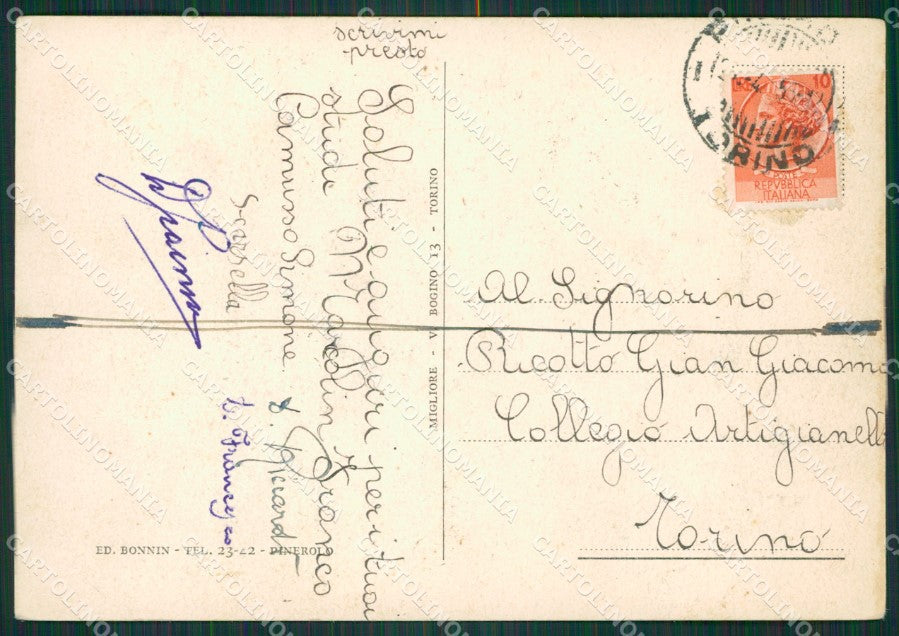 scrivimi
presto
Saluti e auguri per i tuoi
studi Marcolin Franco
Camusso Simone
Scarsella
MIGLIORE - V. BOGINO 13 - TORINO
ED. BONNIN - TEL. 23-22 - PINEROLO
TORINO
10
POSTE
REPVBBLICA
ITALIANA
Al Signorino
Ricotto Gian Giacomo
Collegio Artigianelli
Torino
CARTOLINOMANIA